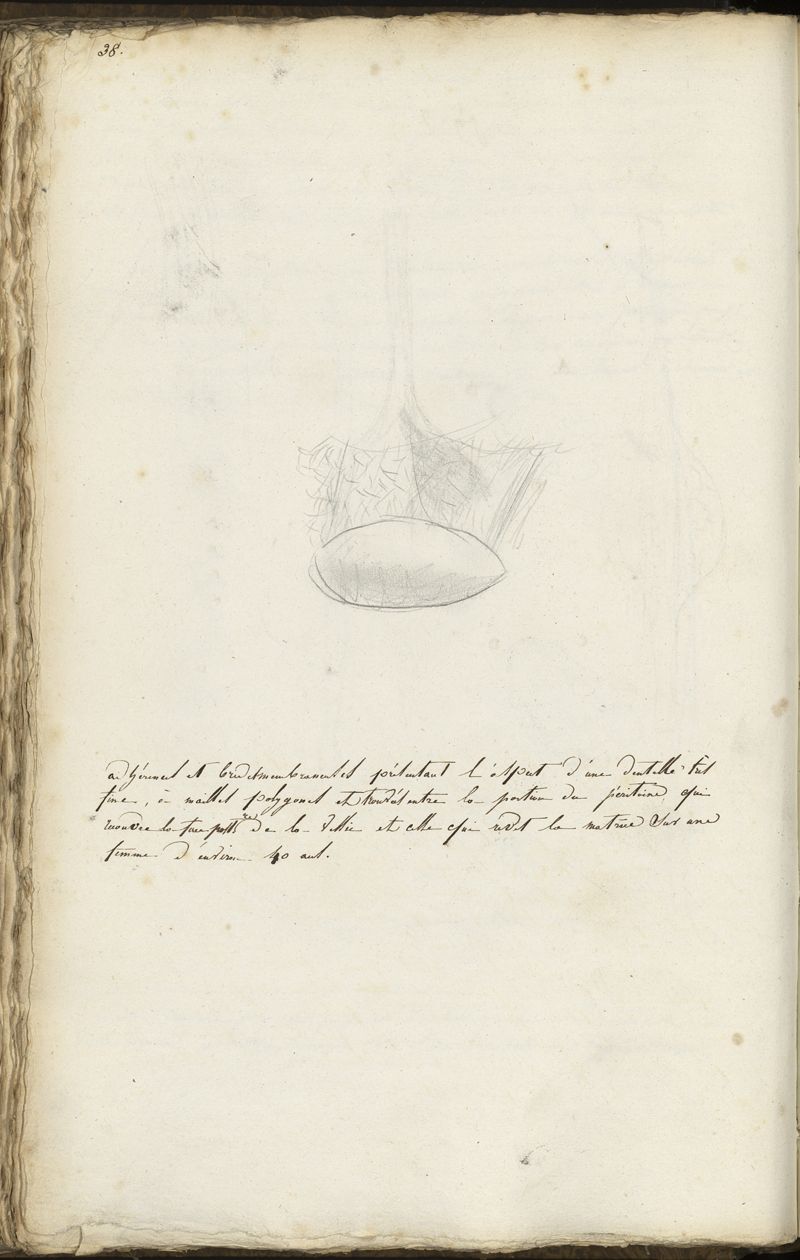 38.
adhérences et brides membraneuses présentant l'aspect d'une dentelle très
fine, à mailles polygones et trouvés entre la portion du péritoine qui
recouvre la face postre de la vessie et celle qui revêt la matrice sur une
femme d'environ 40 ans.